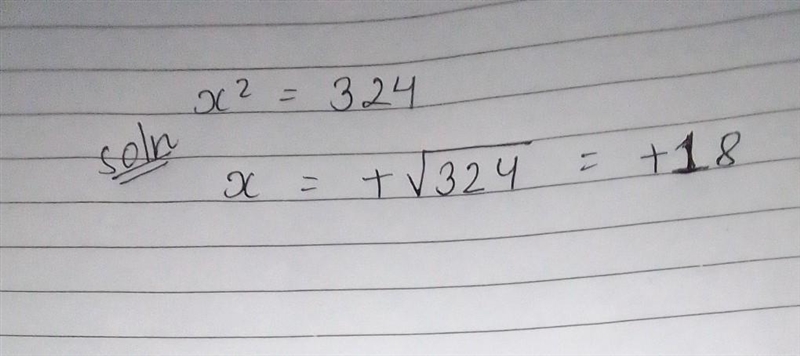 x² = 324
soln
x = +√324 = +18